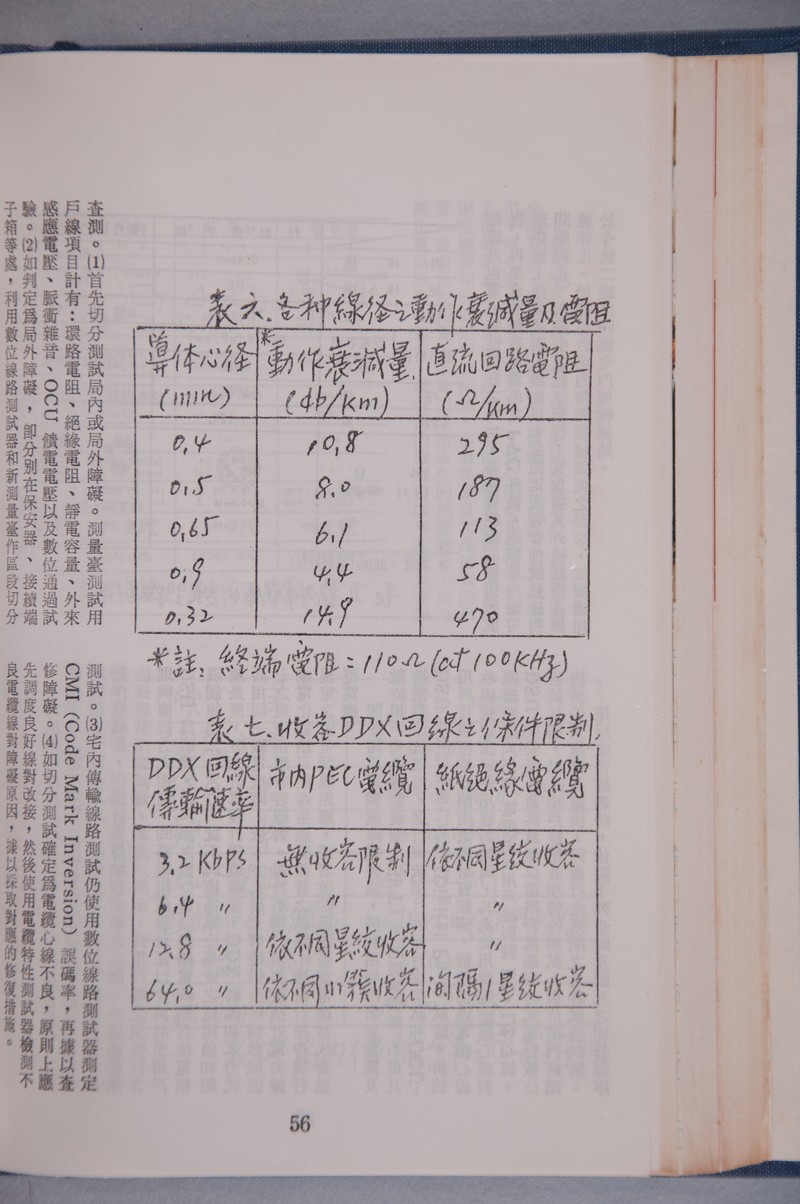 表六、各种線径之動作衰減量及電阻
導体心径 *動作衰減量 直流回路電阻
(mm) (db/km) (Ω/km)
0.4 10.8 295
0.5 8.0 187
0.65 6.1 113
0.9 4.4 58
0.32 14.9 470
*註: 終端電阻=110Ω(at 100KHz)
表七、收容DDX回線之條件限制
DDX回線 市内PEC電纜 紙絕緣電纜
傳輸速率
3.2 Kbps 無收容限制 依不同星絞收容
6.4 〃 〃 〃
12.8 〃 依不同星絞收容 〃
64.0 〃 依不同小類收容 间隔1星絞收容
查測。⑴首先切分測試局內或局外障礙。測量臺測試用
戶線項目計有：環路電阻、絕緣電阻、靜電容量、外來
感應電壓、脈衝雜音、OCU 饋電電壓以及數位通過試
驗。⑵如判定爲局外障礙，卽分別在保安器、接續端
子箱等處，利用數位線路測試器和新測量臺作區段切分
測試。⑶宅內傳輸線路測試仍使用數位線路測試器測定
CMI (Code Mark Inversion) 誤碼率，再據以查
修障礙。⑷如切分測試確定爲電纜心線不良，原則上應
先調度良好線對改接，然後使用電纜特性測試器檢測不
良電纜線對障礙原因，據以採取對應的修復措施。
56